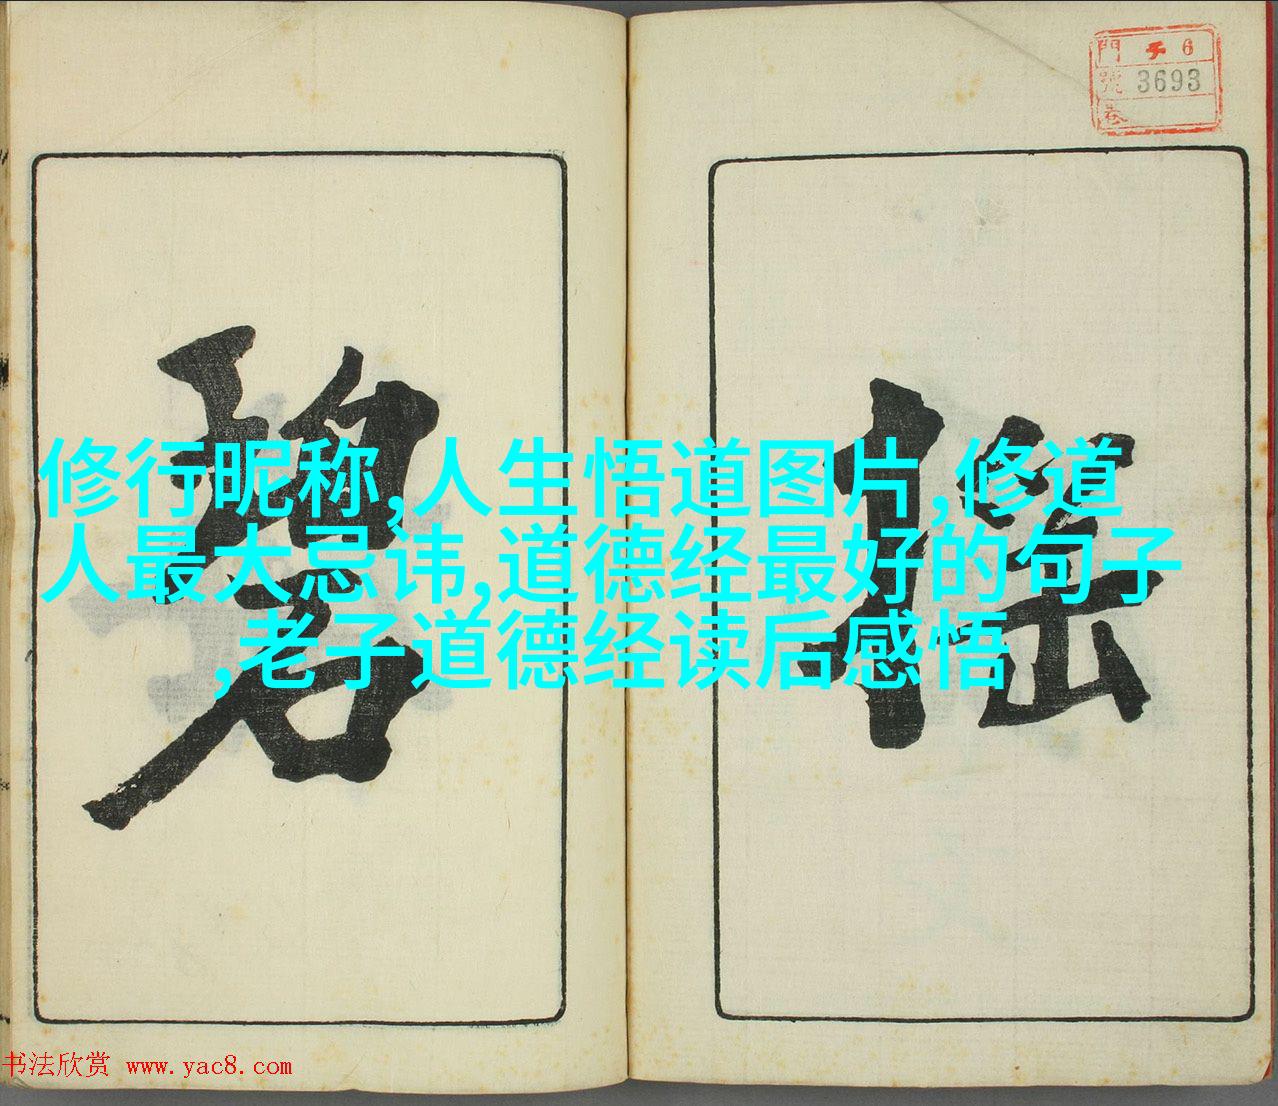 門 チ 6
號 3693
卷
搖
碧
修行昵称,人生悟道图片,修道
人最大忌讳,道德经最好的句子
,老子道德经读后感悟
书法欣赏 www.yac8.com